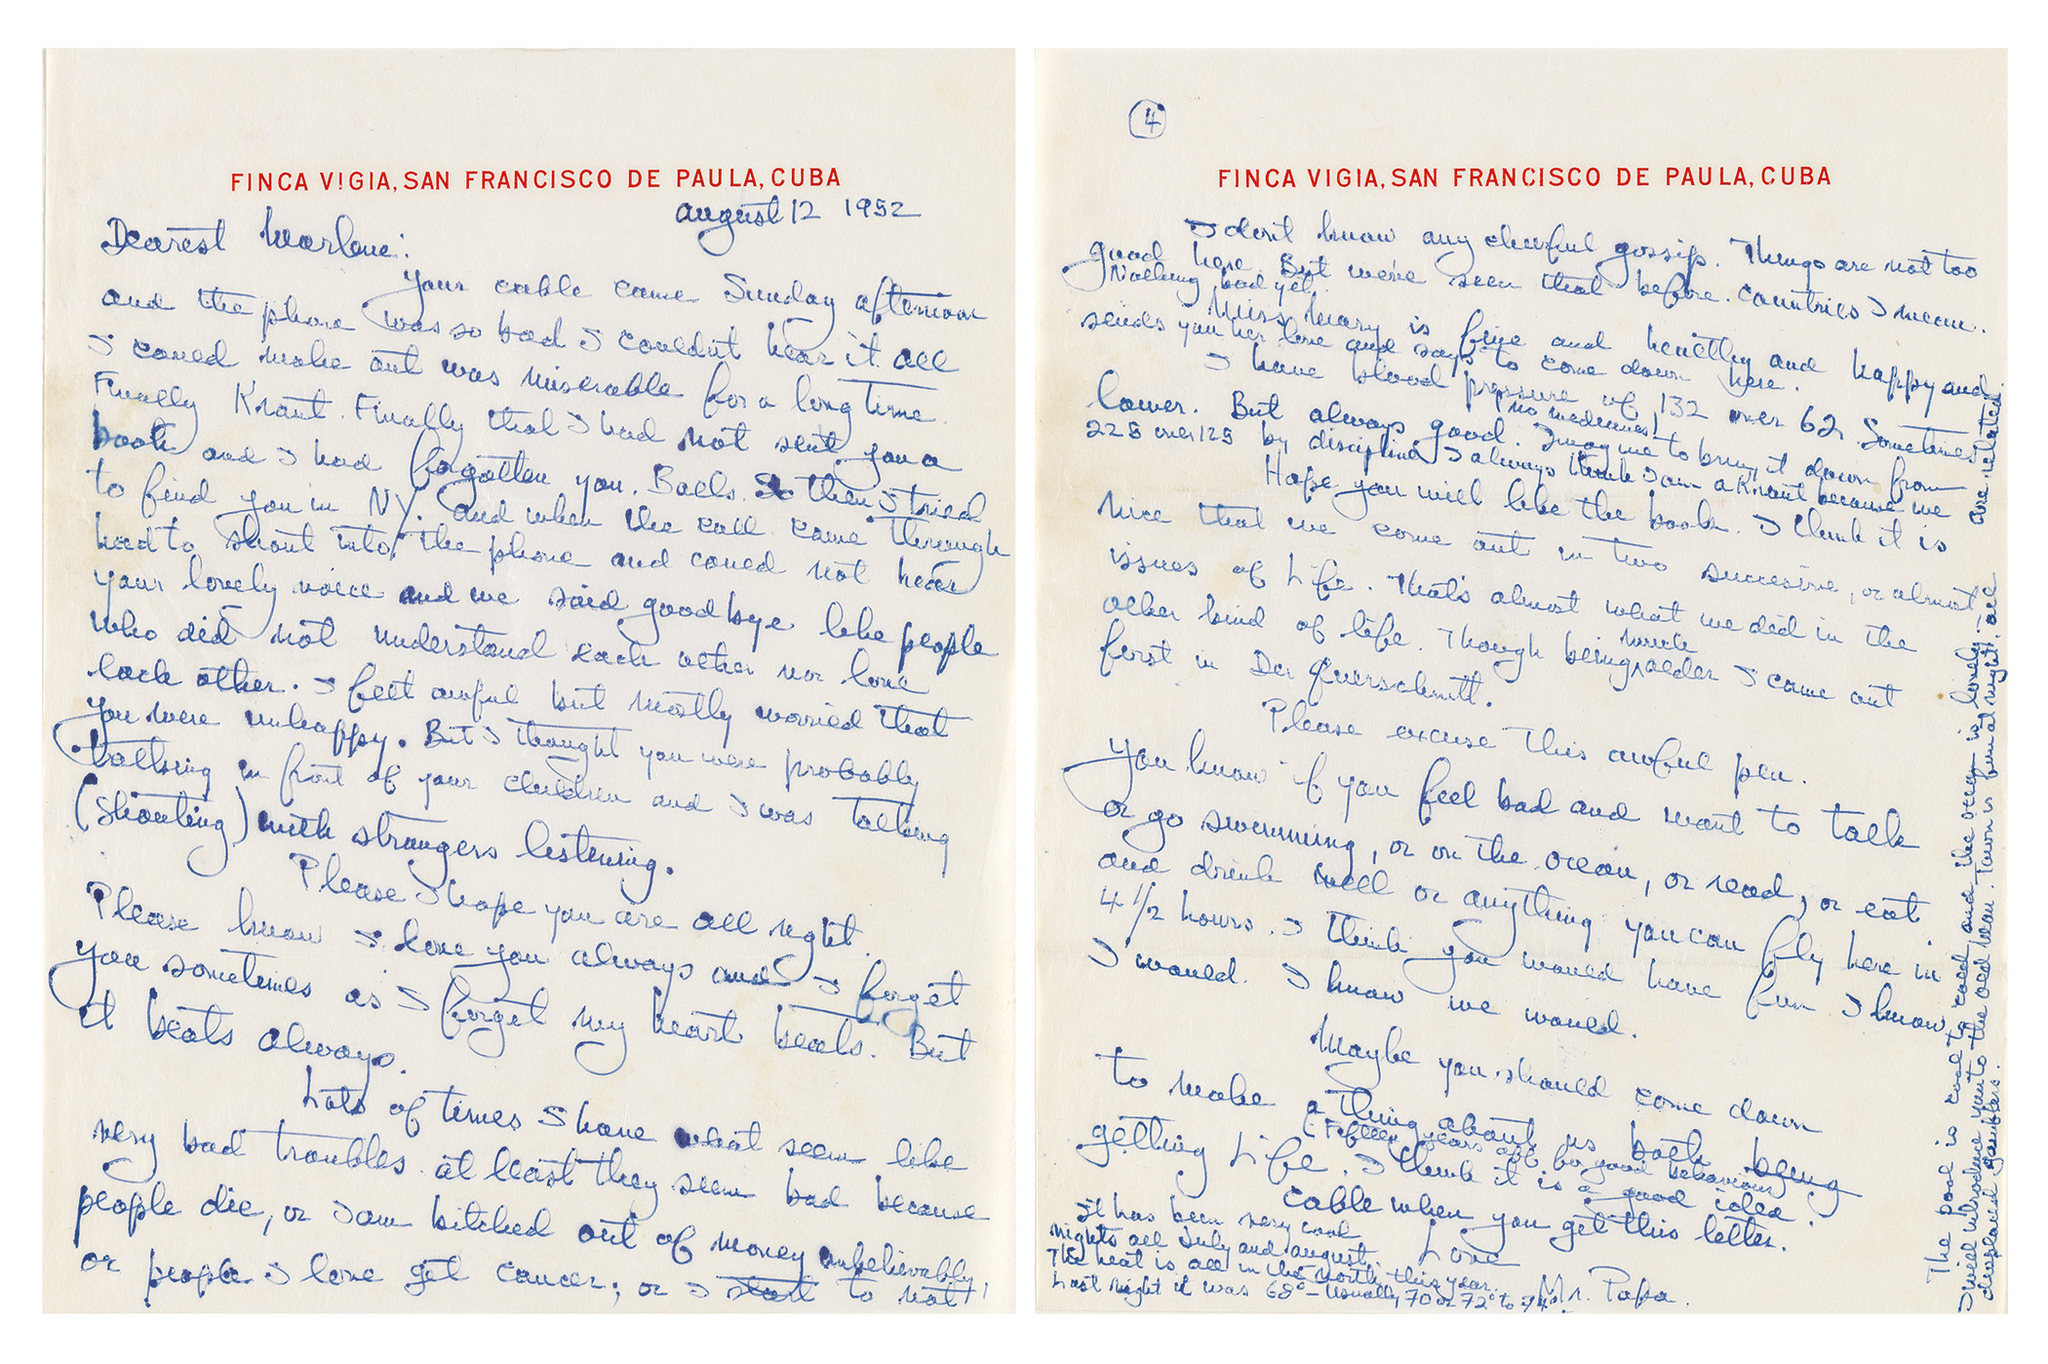 FINCA VIGIA, SAN FRANCISCO DE PAULA, CUBA
august 12 1952
Dearest Marlene:
Your cable came Sunday afternoon
and the phone was so bad I couldn't hear it. all
I could make out was miserable for a long time.
Finally Kraut. Finally that I had not sent you a
book and I had forgotten you. Balls. So then I tried
to find you in NY. and when the call came through
had to shout into the phone and could not hear
your lovely voice and we said goodbye like people
who did not understand each other nor love
each other. I felt awful but mostly worried that
you were unhappy. But I thought you were probably
talking in front of your children and I was talking
(shouting) with strangers listening.
Please I hope you are all right.
Please know I love you always and I forget
you sometimes as I forget my heart beats. But
it beats always.
Lots of times I have what seem like
very bad troubles. at least they seem bad because
people die, or I am bitched out of money unbelievably,
or people I love get cancer; or I start to not
4
FINCA VIGIA, SAN FRANCISCO DE PAULA, CUBA
I don't know any cheerful gossip. Things are not too
good here. But we've seen that before. Countries I mean.
Nothing bad yet.
Miss Mary is fine and healthy and happy and
sends you her love and says to come down here.
I have blood pressure of 132 over 62. Sometimes
lower. But always good. Imagine to bring it down from
(no medecines)
225 over 125 by discipline. I always think I am a Kraut because we
are related.
Hope you will like the book. I think it is
nice that we come out in two succesive, or almost
issues of Life. That's almost what we did in the
other kind of life. Though being much older I came out
first in Der Querschnitt.
Please excuse this awful pen.
You know if you feel bad and want to talk
or go swimming, or on the ocean, or read, or eat
and drink well or anything you can fly here in
4 1/2 hours. I think you would have fun. I know
I would. I know we would.
Maybe you should come down
to make a thing about us both being
(Fifteen years off for good behaviour)
getting Life. I think it is a good idea.
Cable when you get this letter.
Love
Mr. Papa.
It has been very cool
nights all July and august.
The heat is all in the north this year.
Last night it was 68° - usually 70 or 72° to 74°.
The pool is cool and the ocean is lovely
I will introduce you to the old man. Town is fun at night: all
displaced gamblers.